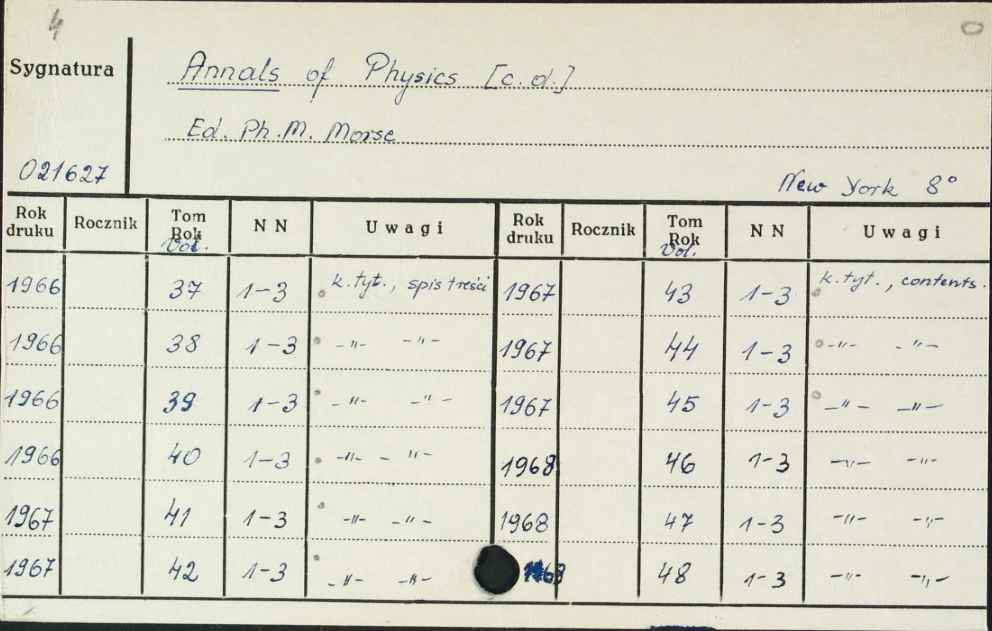 4
Sygnatura
Annals of Physics [c.d.]
Ed. Ph.M. Morse
021627
New York 8°
Rok druku Rocznik Tom Rok Vol. N N Uwagi Rok druku Rocznik Tom Rok Vol. N N Uwagi
1966 37 1-3 k.tyt., spis treści 1967 43 1-3 k.tyt., contents.
1966 38 1-3 -"- -"- 1967 44 1-3 -"- -"-
1966 39 1-3 -"- -"- 1967 45 1-3 -"- -"-
1966 40 1-3 -"- -"- 1968 46 1-3 -"- -"-
1967 41 1-3 -"- -"- 1968 47 1-3 -"- -"-
1967 42 1-3 -"- -"- 1968 48 1-3 -"- -"-